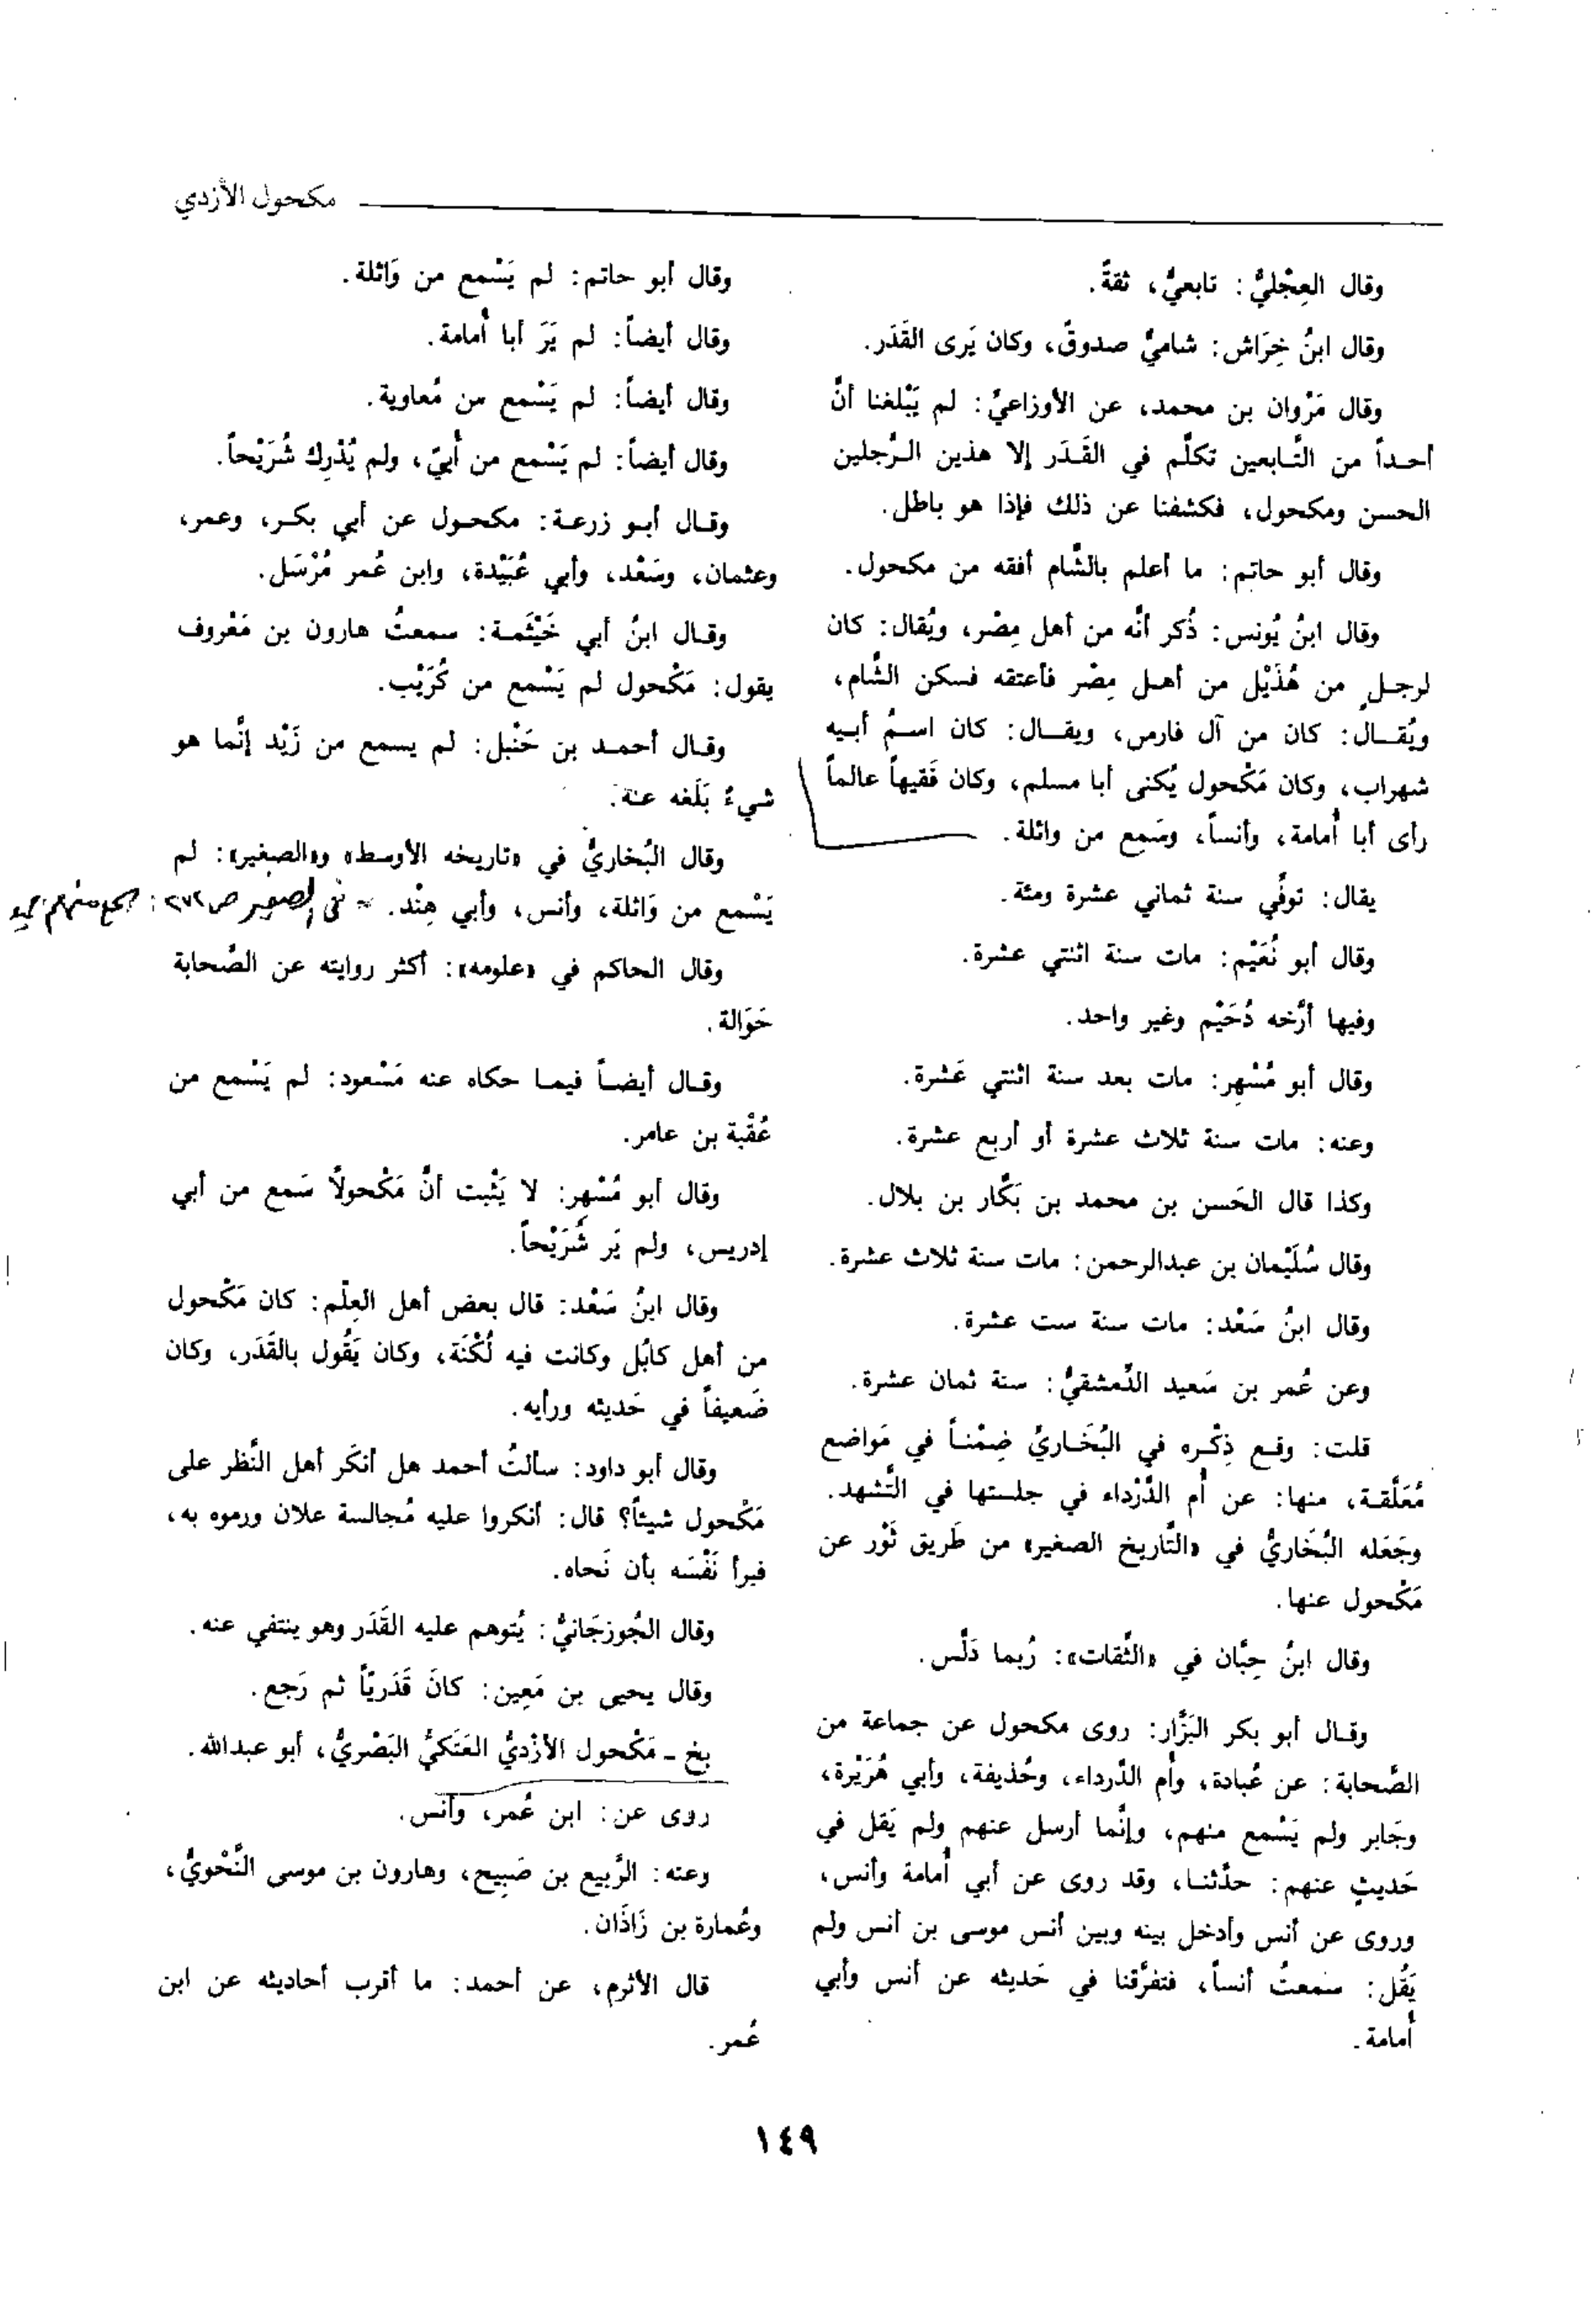 مكحول الأزدي
وقال العِجْليُّ: تابعيٌّ، ثقةٌ.
وقال ابنُ خِرَاش: شاميٌّ صدوقٌ، وكان يَرى القَدَر.
وقال مَرْوان بن محمد، عن الأوزاعيِّ: لم يَبْلغنا أنَّ
أحـداً من التَّـابعين تكلَّم في القَـدَر إلا هذين الـرَّجلين
الحسن ومكحول، فكشفنا عن ذلك فإذا هو باطل.
وقال أبو حاتم: ما أعلم بالشَّام أفقه من مكحول.
وقال ابنُ يُونس: ذُكر أنَّه من أهل مِصْر، ويُقال: كان
لرجـلٍ من هُذَيْل من أهـل مِصْر فأعتقه فسكن الشَّام،
ويُقـال: كان من آل فارس، ويقـال: كان اسـمُ أبـيه
شهراب، وكان مَكْحول يُكنى أبا مسلم، وكان فَقيهاً عالماً
رأى أبا أُمامة، وأنساً، وسَمع من واثلة.
يقال: توفِّي سنة ثماني عشرة ومئة.
وقال أبو نُعَيْم: مات سنة اثنتي عشرة.
وفيها أرَّخه دُحَيْم وغير واحد.
وقال أبو مُسْهِر: مات بعد سنة اثنتي عَشرة.
وعنه: مات سنة ثلاث عشرة أو أربع عشرة.
وكذا قال الحَسن بن محمد بن بَكَّار بن بلال.
وقال سُلَيْمان بن عبدالرحمن: مات سنة ثلاث عشرة.
وقال ابنُ سَعْد: مات سنة ست عشرة.
وعن عُمر بن سَعيد الدِّمشقيُّ: سنة ثمان عشرة.
قلت: وقـع ذِكْـره في البُخَـاريِّ ضِمْنـاً في مَواضع
مُعَلَّقـة، منها: عن أُم الدَّرْداء في جلـستها في التَّشهد.
وجَعَله البُخَاريُّ في «التَّاريخ الصغير» من طَريق ثَوْر عن
مَكْحول عنها.
وقال ابنُ حِبَّان في «الثِّقات»: رُبما دَلَّس.
وقـال أبو بكر البَزَّار: روى مكحول عن جماعة من
الصَّحابة: عن عُبادة، وأُم الدَّرداء، وحُذيفة، وأبي هُرَيْرة،
وجَابر ولم يَسْمع منهم، وإنَّما أرسل عنهم ولم يَقل في
حَديثٍ عنهم: حدَّثنـا، وقد روى عن أبي أُمامة وأنس،
وروى عن أنس وأدخل بينه وبين أنس موسى بن أنس ولم
يَقُل: سَمعتُ أنساً، فتفرَّقنا في حَديثه عن أنس وأبي
أُمامة.
وقال أبو حاتم: لم يَسْمع من وَاثلة.
وقال أيضاً: لم يَرَ أبا أُمامة.
وقال أيضاً: لم يَسْمع من مُعاوية.
وقال أيضاً: لم يَسْمع من أُبيّ، ولم يُدْرِك شُرَيْحاً.
وقـال أبـو زرعـة: مكحـول عن أبي بكـر، وعمر،
وعثمان، وسَعْد، وأبي عُبَيْدة، وابن عُمر مُرْسَل.
وقـال ابنُ أبي خَيْثَمـة: سمعتُ هارون بن مَعْروف
يقول: مَكْحول لم يَسْمع من كُرَيْب.
وقـال أحمـد بن حَنْبل: لم يسمع من زَيْد إنَّما هو
شيءٌ بَلَغه عنه.
وقال البُخاريُّ في «تاريخه الأوسط» و«الصغير»: لم
يَسْمع من وَاثلة، وأنس، وأبي هِنْد. = في الصغير ص٢٧٢:
وقال الحاكم في «علومه»: أكثر روايته عن الصَّحابة
حَوَالة.
وقـال أيضـاً فيمـا حكاه عنه مَسْعود: لم يَسْمع من
عُقْبة بن عامر.
وقال أبو مُسْهِر: لا يَثْبت أنَّ مَكْحولاً سَمع من أبي
إدريس، ولم يَر شُرَيْحاً.
وقال ابنُ سَعْد: قال بعض أهل العِلْم: كان مَكْحول
من أهل كابُل وكانت فيه لُكْنَة، وكان يَقُول بالقَدَر، وكان
ضَعيفاً في حَديثه ورأيه.
وقال أبو داود: سألتُ أحمد هل أنكَر أهل النَّظر على
مَكْحول شيئاً؟ قال: أنكروا عليه مُجالسة علان ورموه به،
فبرأ نَفْسَه بأن نَحاه.
وقال الجُوزجَانيُّ: يُتوهم عليه القَدَر وهو ينتفي عنه.
وقال يحيى بن مَعِين: كانَ قَدَريّاً ثم رَجع.
بخ ـ مَكْحول الأزْديُّ العَتَكيُّ البَصْريُّ، أبو عبدالله.
روى عن: ابن عُمر، وأنس.
وعنه: الرَّبيع بن صَبِيح، وهارون بن موسى النَّحْويُّ،
وعُمارة بن زَاذَان.
قال الأثرم، عن أحمد: ما أقرب أحاديثه عن ابن
عُمر.
١٤٩